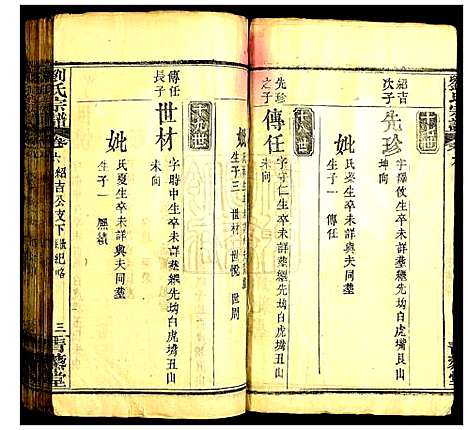 紹吉
次子
先珍
字擇攸生卒未詳葬繼先坳白虎嘴艮山
坤向
妣
氏 生卒未詳與夫同塋
生子一 傳任
十八世
先珍
之子
傳任
字守仁生卒未詳葬繼先坳白虎嘴丑山
未向
生子三 世材 世悅 世周
十九世
傳任
長子
世材
字時中生卒未詳葬繼先坳白虎嘴丑山
未向
妣
氏夏生卒未詳與夫同塋
生子一
劉氏宗譜
卷六 紹吉公支下 紀略
三
青藜堂